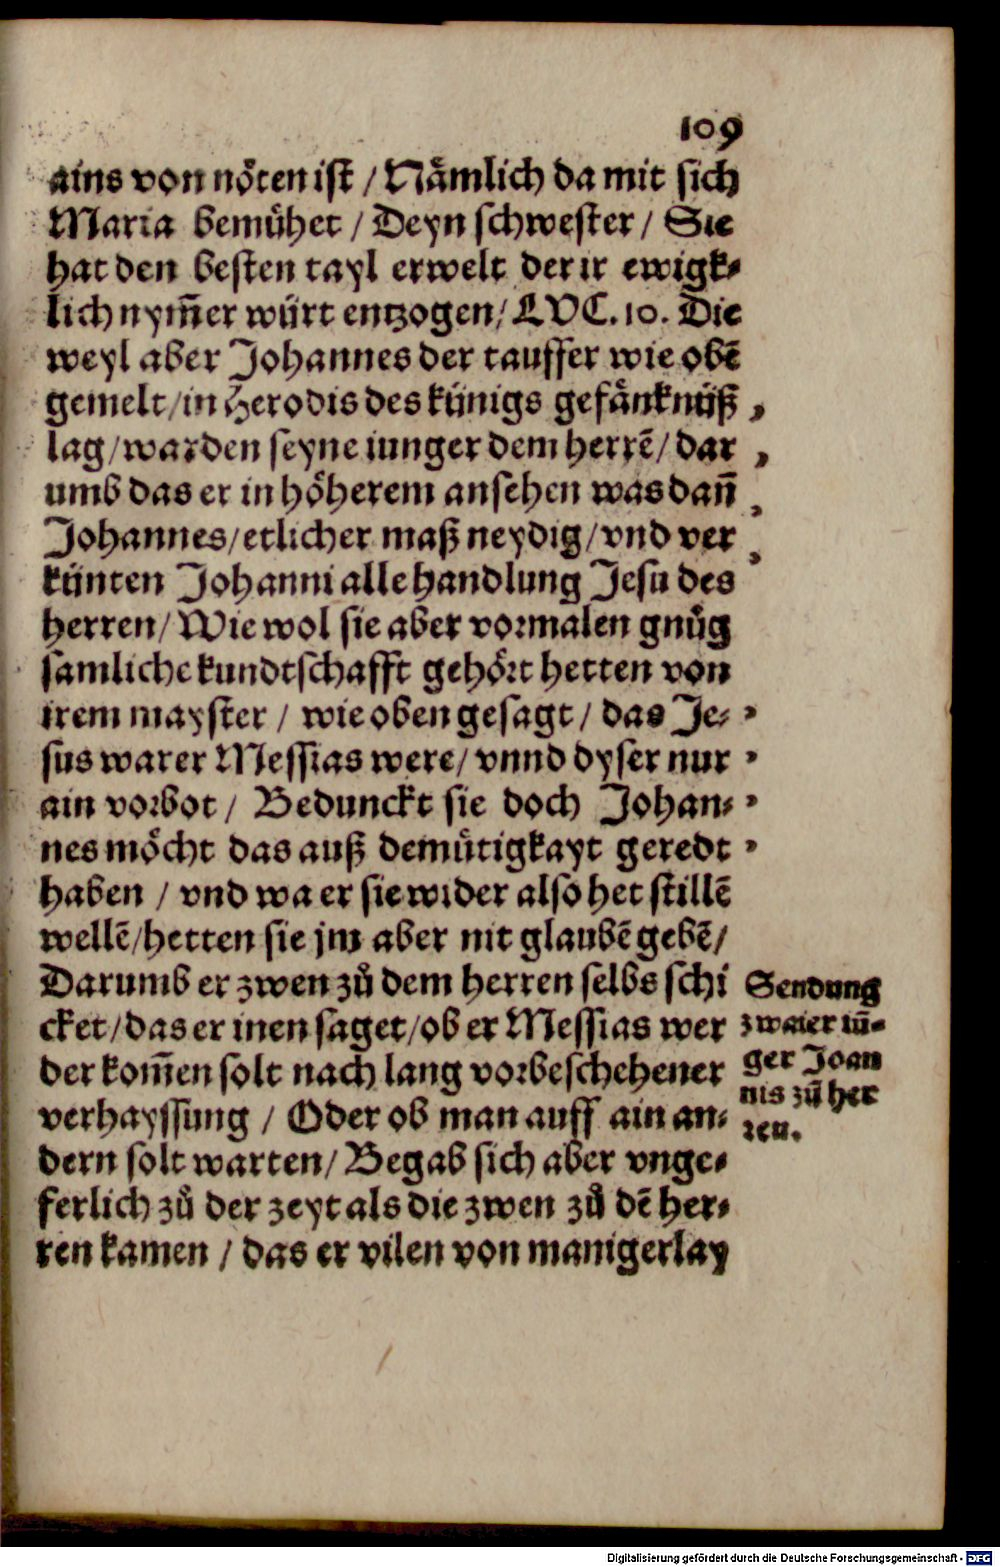 109
ains von nöten ist / Nämlich da mit sich
Maria bemühet / Deyn schwester / Sie
hat den besten tayl erwelt der ir ewigk⸗
lich nym̃er würt entzogen / LVC. 10. Die
weyl aber Johannes der tauffer wie obẽ
gemelt / in Herodis des künigs gefänknüß
lag / warden seyne iunger dem herrẽ / dar
umb das er in höherem ansehen was dañ
Johannes / etlicher maß neydig / vnd ver
künten Johanni alle handlung Jesu des
herren / Wie wol sie aber vormalen gnůg
samliche kundtschafft gehört hetten von
irem mayster / wie oben gesagt / das Je⸗
sus warer Messias were / vnnd dyser nur
ain vorbot / Bedunckt sie doch Johan⸗
nes möcht das auß demütigkayt geredt
haben / vnd wa er sie wider also het stillẽ
wellẽ / hetten sie jm aber nit glaubẽ gebẽ /
Darumb er zwen zů dem herren selbs schi
cket / das er inen saget / ob er Messias wer
der kom̃en solt nach lang vorbeschehener
verhayssung / Oder ob man auff ain an⸗
dern solt warten / Begab sich aber vnge⸗
ferlich zů der zeyt als die zwen zů dẽ her⸗
ren kamen / das er vilen von manigerlay
Sendung
zwaier iũ⸗
ger Joan
nis zů her
ren.
Digitalisierung gefördert durch die Deutsche Forschungsgemeinschaft - DFG